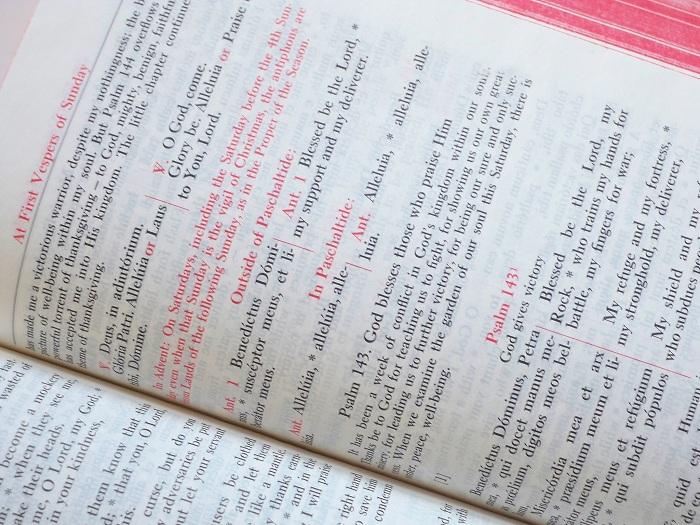 become a mocker
* when they see me,
ake their heads.
me, O Lord, my God, *
in your kindness,
them know that this
ds, * that you, O Lord,
curse, but do you
y adversaries be put
let your servant
users be clothed
and let them
like a mantle.
y thanks earn-
* and in the
I will praise
right hand
to save him
condemn
At First Vespers of Sunday
has made me a victorious warrior, despite my nothingness; the
picture of well-being within my soul. But Psalm 144 overflows
torrent of thanksgiving – to God, mighty, benign, faithful
as accepted me into His kingdom. The little chapter continue
heme of thanksgiving.
℣. Deus, in adiutórium.
Glória Patri. Allelúia or Laus
tibi, Dómine.
℣. O God, come.
Glory be. Alleluia or Praise
to You, Lord.
In Advent: On Saturdays, including the Saturday before the 4th Sun-
even when that Sunday is the vigil of Christmas, the antiphons are
from Lauds of the following Sunday, as in the Proper of the Season.
Outside of Paschaltide:
Ant. 1 Benedíctus Dómi-
nus, * suscéptor meus, et li-
berátor meus.
Ant. 1 Blessed be the Lord, *
my support and my deliverer.
In Paschaltide:
Ant. Allelúia, * allelúia, alle-
lúia.
Ant. Alleluia, * alleluia, alle-
luia.
Psalm 143. God blesses those who praise Him
It has been a week of conflict in God's kingdom within our soul.
Thanks be to God for teaching us to fight, for showing us our own great
for leading us to further victory, for being our sure and only suc-
When we examine the garden of our soul this Saturday, there is
order, peace, well-being.
Psalm 143:
[1]
God gives victory
Benedíctus Dóminus, Petra
mea, * qui docet manus me-
as ad prœlium, dígitos meos bel-
Misericórdia mea et arx
* præsídium meum et li-
meus,
meus et refúgium
* qui subdit pópulos
Blessed be the Lord, my
Rock, * who trains my hands for
battle, my fingers for war;
My refuge and my fortress, *
my stronghold, my deliverer,
My shield and
who subdues